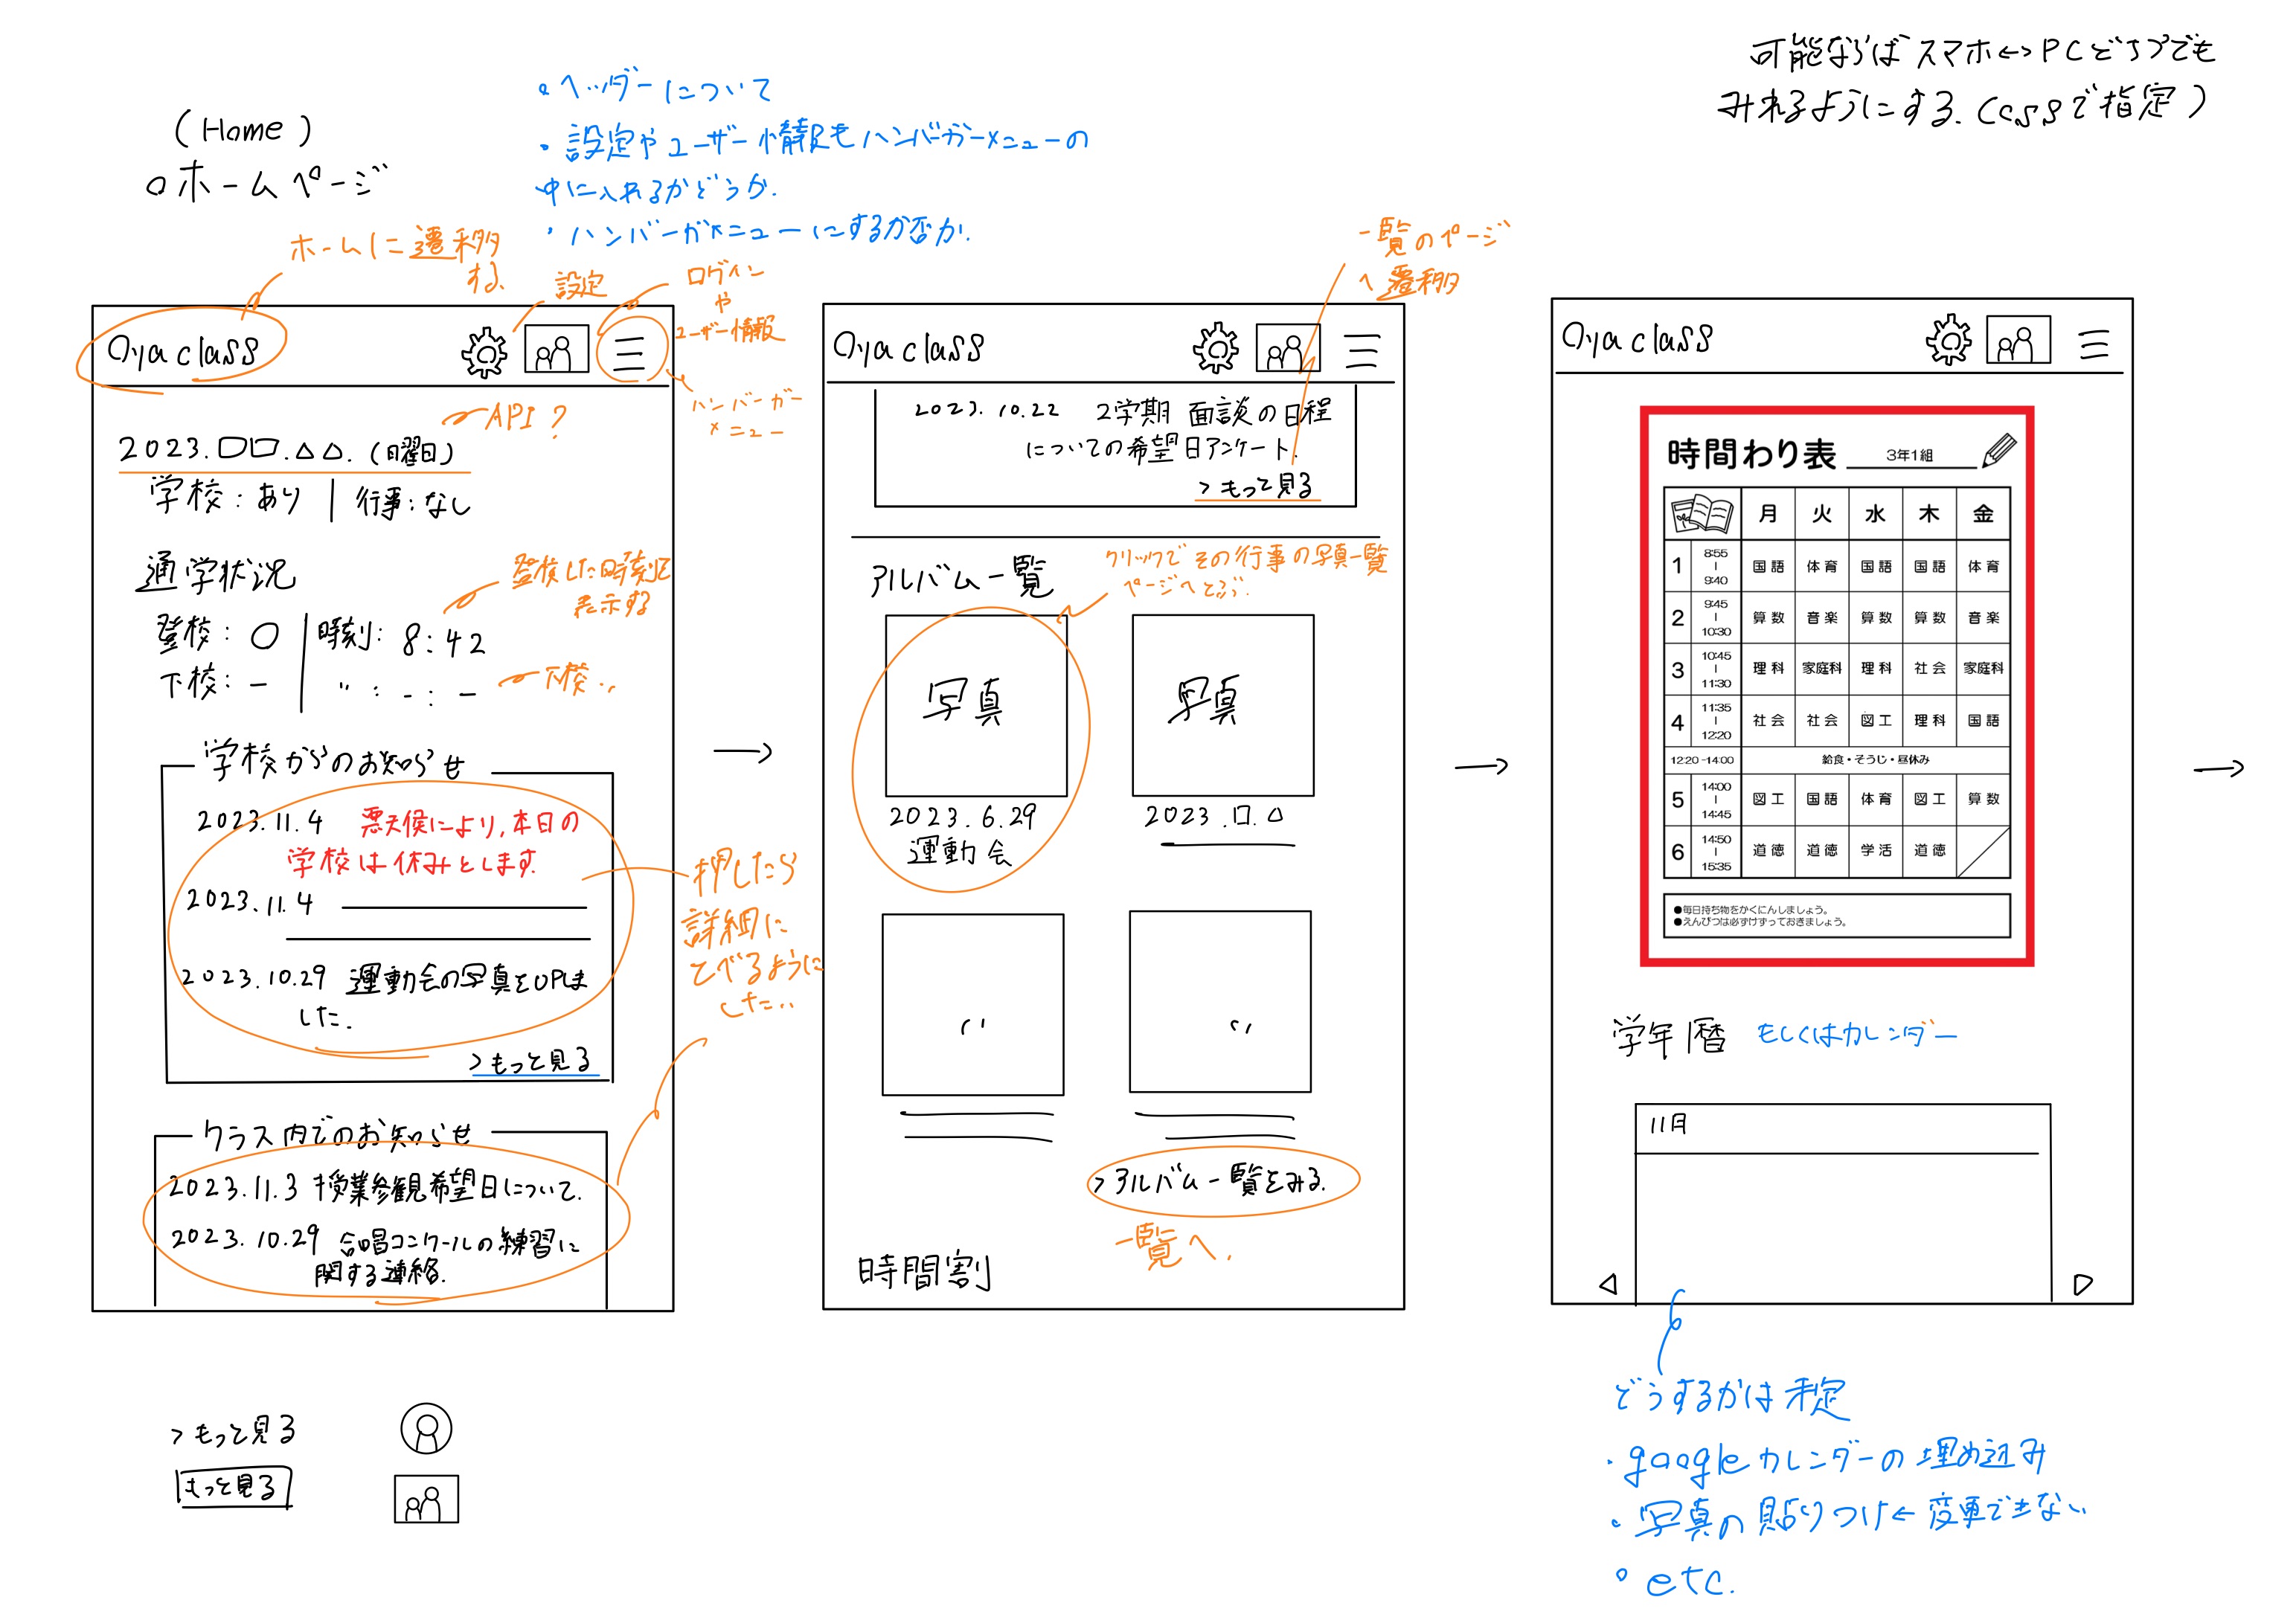 (Home)
○ホームページ
・ヘッダーについて
・設定やユーザー情報もハンバーガーメニューの
中に入れるかどうか.
・ハンバーガーメニューにするか否か.
可能ならば スマホ↔PCどっちでも
みれるようにする.(cssで指定)
ホームに遷移
する.
設定
ログイン
や
ユーザー情報
ハンバーガー
メニュー
Oya class
API?
2023.□□.△△.(日曜日)
学校:あり | 行事:なし
通学状況
登校した時刻を
表示する
登校:○ | 時刻:8:42
下校:- | 〃:-:-
下校..
学校からのお知らせ
2023.11.4 悪天候により,本日の
学校は休みとします.
2023.11.4
2023.10.29 運動会の写真をUPしま
した.
>もっと見る
押したら
詳細に
とべるように
したい..
クラス内でのお知らせ
2023.11.3 授業参観希望日について.
2023.10.29 合唱コンクールの練習に
関する連絡.
>もっと見る
もっと見る
一覧のページ
へ遷移
Oya class
2023.10.22 2学期 面談の日程
についての希望日アンケート.
>もっと見る
アルバム一覧
クリックでその行事の写真一覧
ページへとぶ.
写真
写真
2023.6.29
運動会
2023.□.△
>アルバム一覧をみる.
一覧へ.
時間割
Oya class
時間わり表 3年1組
月 火 水 木 金
1 8:55 | 9:40 国語 体育 国語 国語 体育
2 9:45 | 10:30 算数 音楽 算数 算数 音楽
3 10:45 | 11:30 理科 家庭科 理科 社会 家庭科
4 11:35 | 12:20 社会 社会 図工 理科 国語
12:20-14:00 給食・そうじ・昼休み
5 14:00 | 14:45 図工 国語 体育 図工 算数
6 14:50 | 15:35 道徳 道徳 学活 道徳
●毎日持ち物をかくにんしましょう。
●えんぴつは必ずけずっておきましょう。
学年暦 もしくはカレンダー
11月
どうするかは未定
・googleカレンダーの埋め込み
・写真の貼りつけ←変更できない
・etc.